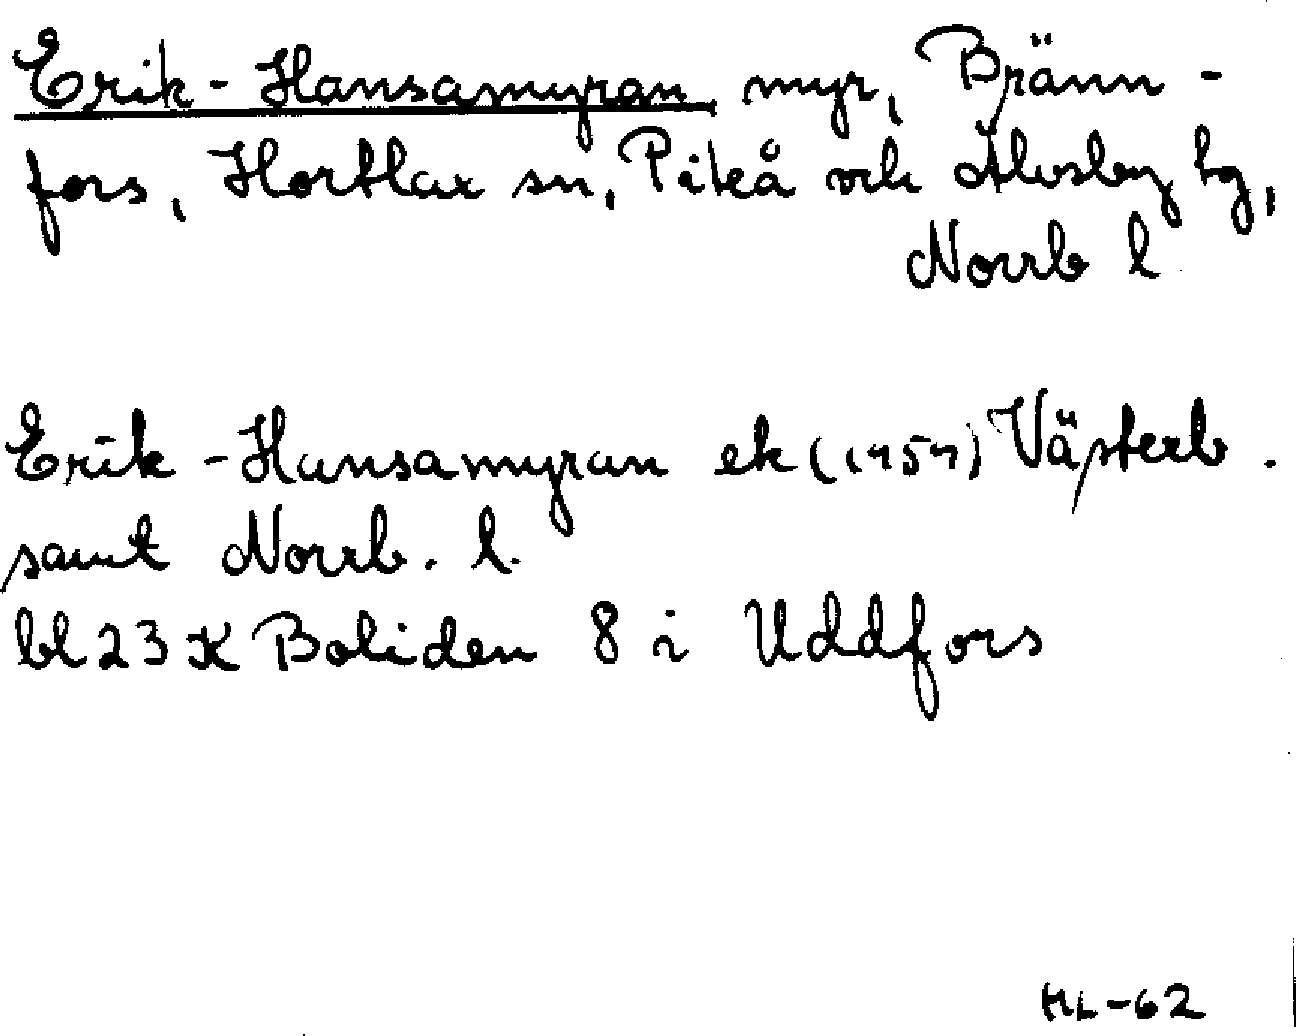 Erik-Hansamyran myr, Bränn-
fors, Hortlax sn, Piteå och Älvsby tg,
Norrb l
Erik-Hansamyran ek (1959) Västerb.
samt Norrb. l.
bl 23 K Boliden 8 i Uddfors
HL-62